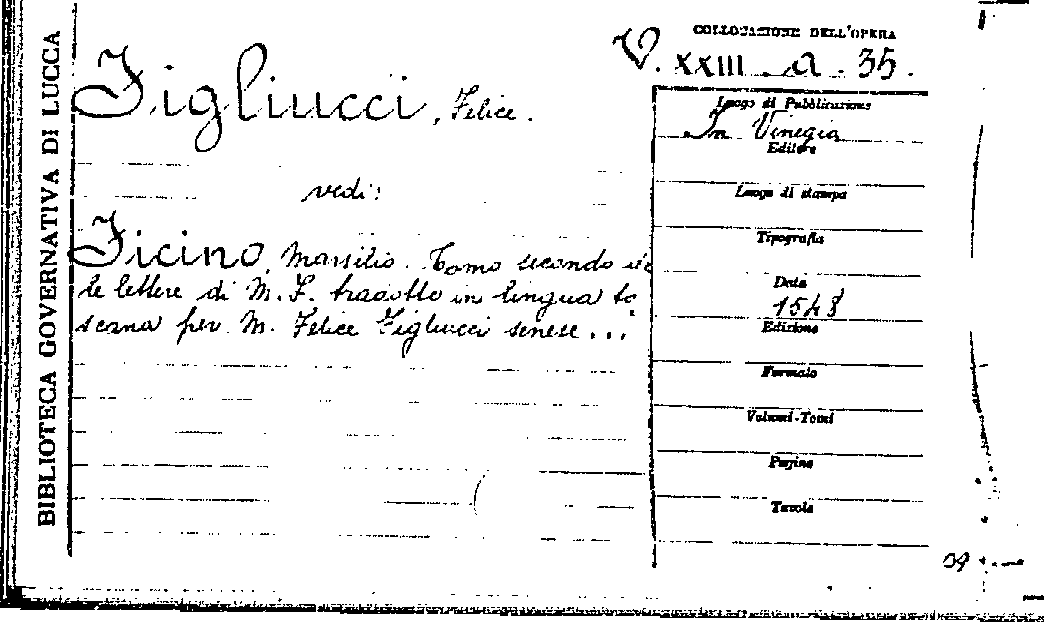 BIBLIOTECA GOVERNATIVA DI LUCCA
COLLOCAZIONE DELL'OPERA
V. XXIII. a. 35.
Figliucci, Felice.
vedi:
Ficino, Marsilio. Tomo secondo del
le lettere di M. F. tradotto in lingua to
scana per M. Felice Figliucci senese...
Luogo di Pubblicazione
In Vinegia
Editore
Luogo di stampa
Tipografia
Data
1548
Edizione
Formato
Volumi-Tomi
Pagine
Tavole